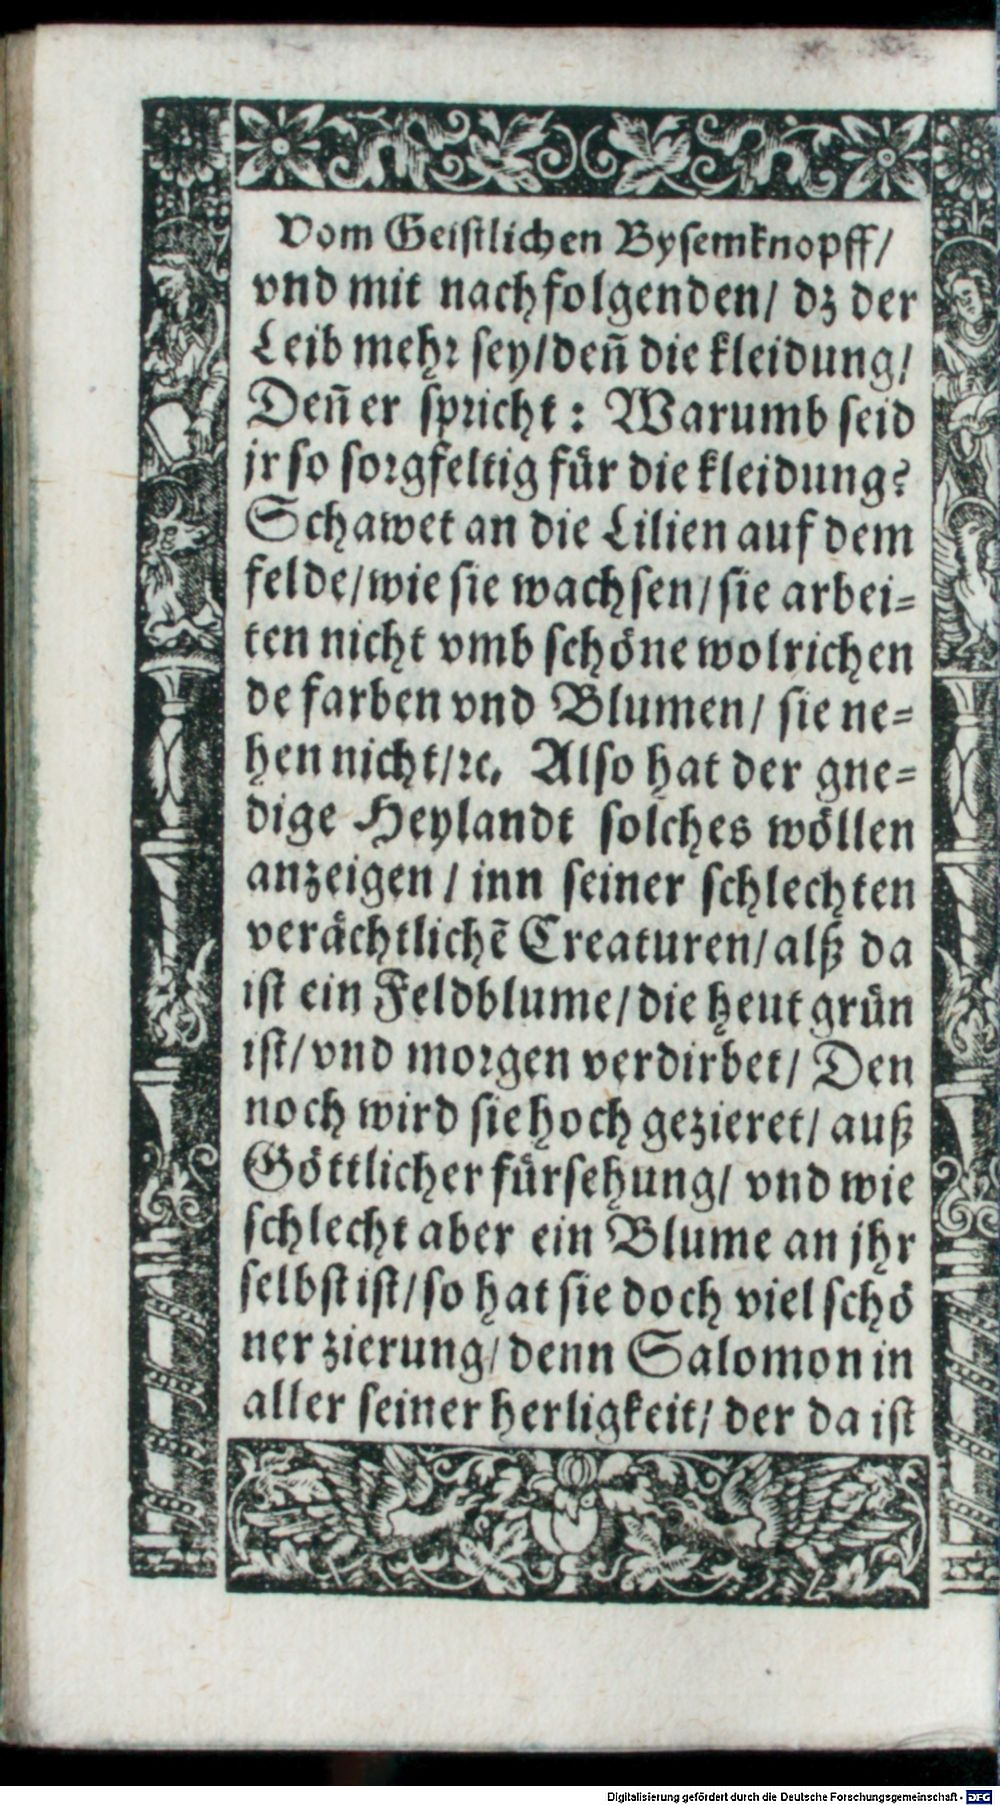 Vom Geistlichen Bysemknopff/
vnd mit nachfolgenden/ dz der
Leib mehr sey/ deñ die kleidung/
Deñ er spricht: Warumb seid
jr so sorgfeltig für die kleidung?
Schawet an die Lilien auf dem
felde/ wie sie wachsen/ sie arbei-
ten nicht vmb schöne wolrichen
de farben vnd Blumen/ sie ne-
hen nicht/ ꝛc. Also hat der gne-
dige Heylandt solches wöllen
anzeigen/ inn seiner schlechten
verächtlichẽ Creaturen/ alß da
ist ein Feldblume/ die heut grün
ist/ vnd morgen verdirbet/ Den
noch wird sie hoch gezieret/ auß
Göttlicher fürsehung/ vnd wie
schlecht aber ein Blume an jhr
selbst ist/ so hat sie doch viel schö
ner zierung/ denn Salomon in
aller seiner herligkeit/ der da ist
Digitalisierung gefördert durch die Deutsche Forschungsgemeinschaft - DFG